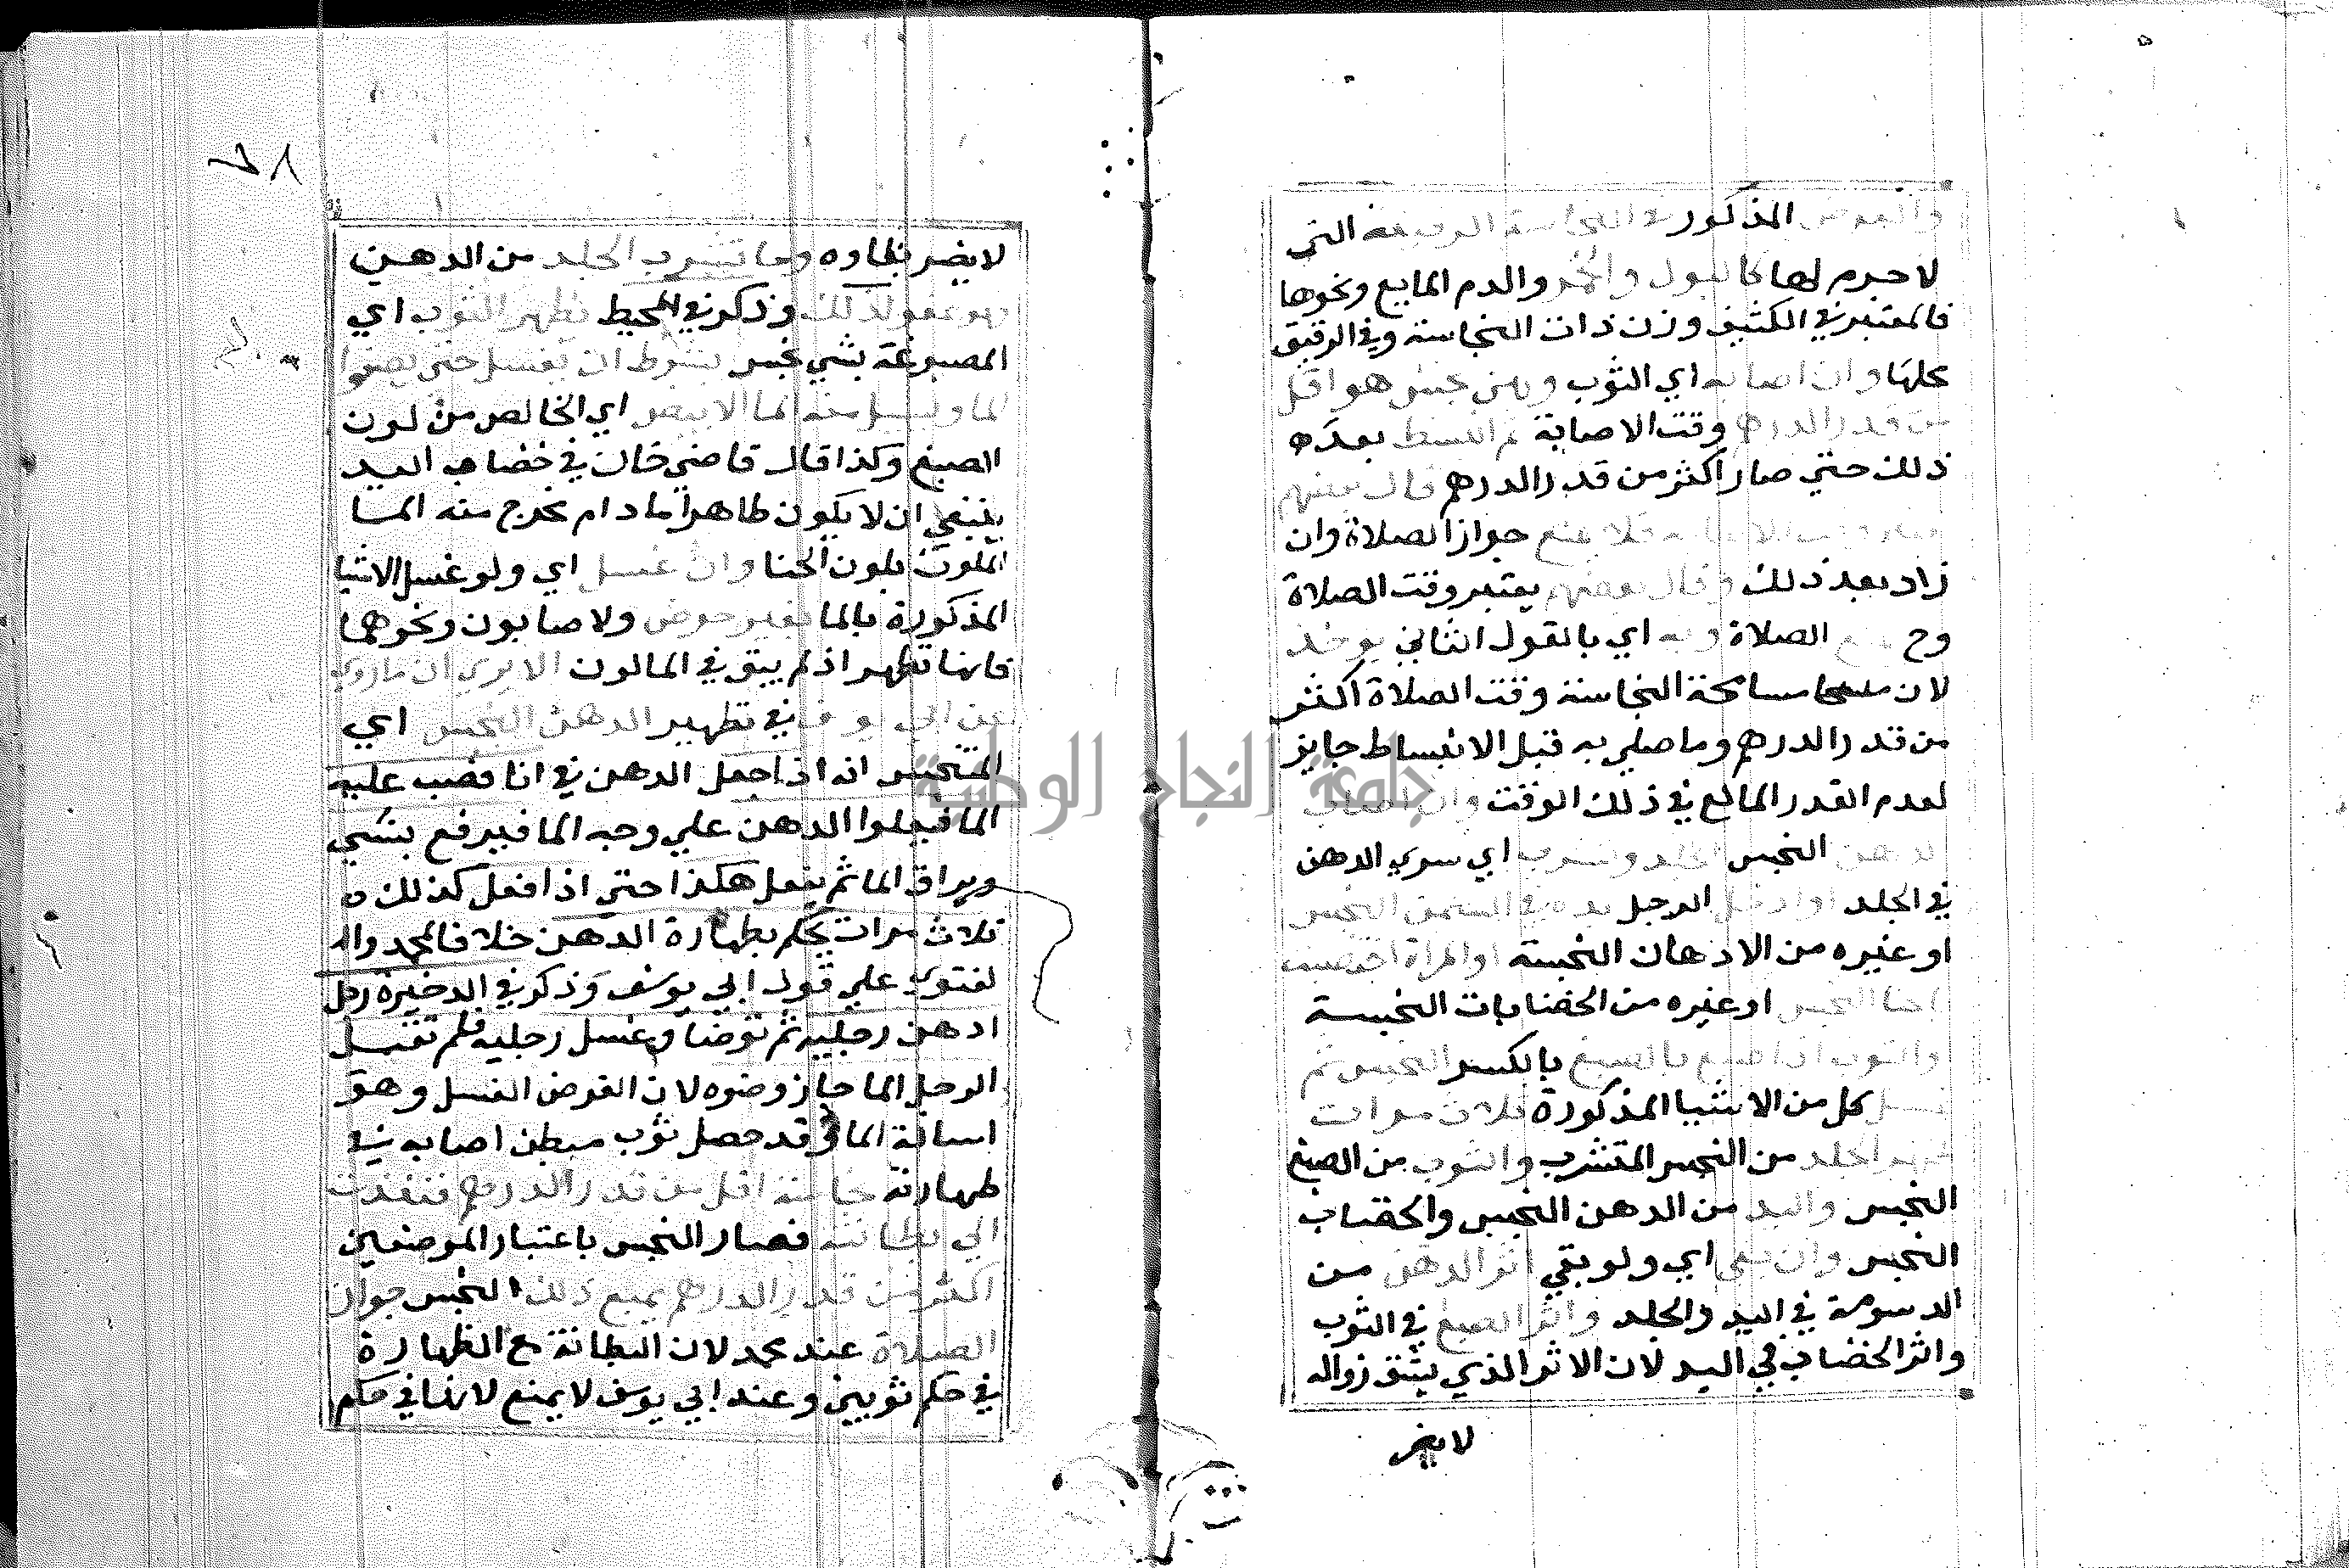 المذكور التي
لا جرم لها كالبول والخمر والدم المايع ونحوها
فالمعتبر في الكثيف وزن ذات النجاسة وفي الرقيق
محلها وان اصابه اي الثوب دهن نجس هو اقل
من قدر الدرهم وقت الاصابة ثم انبسط بعده
ذلك حتي صار اكثر من قدر الدرهم قال بعضهم
فلا يمنع جواز الصلاة وان
زاد بعد ذلك وقال بعضهم يعتبر وقت الصلاة
وح الصلاة وبه اي بالقول الثاني يوخذ
لان مساحة النجاسة وقت الصلاة اكثر
من قدر الدرهم وما صلي به قبل الانبساط جايز
لعدم القدر المانع في ذلك الوقت وان اصاب
الدهن النجس الجلد وتشرب اي سري الدهن
في الجلد او ادخل الرجل يده في السمن النجس
او غيره من الادهان النجسة او المراة اختضبت
بالحنا النجس او غيره من الخضابات النجسة
والثوب اذا اصبغ بالصبغ بالكسر النجس ثم
غسل كل من الاشيا المذكورة ثلاث مرات
طهر الجلد من النجس المتشرب والثوب من الصبغ
النجس واليد من الدهن النجس والخضاب
النجس وان بقي اي ولو بقي اثر الدهن من
الدسومة في اليد والجلد واثر الصبغ في الثوب
واثر الخضاب في اليد لان الاثر الذي يشق زواله
لا يضر
٧٨
لا يضر بقاوه وما تشرب الجلد من الدهن
فهو عفو لذلك وذكر في المحيط تطهير الثوب اي
المصبوغة بشي نجس بشرط ان يغسل حتي يصفوا
الما ويسيل منه الما الابيض اي الخالص من لون
الصبغ وكذا قال قاضي خان في خضاب اليد
ينبغي ان لا يكون طاهرا ما دام يخرج منه الما
الملون بلون الحنا وان غسل اي ولو غسل الاشيا
المذكورة بالما بغير حرض ولا صابون ونحوهما
فانها تطهر اذ لم يبق في الما لون الا يري ان ما روي
عن ابي يوسف في تطهير الدهن النجس اي
المتنجس انه اذا جعل الدهن في انا فصب عليه
الما فيعلوا الدهن علي وجه الما فيرفع بشي
ويراق الما ثم يفعل هكذا حتي اذا فعل كذلك
ثلاث مرات يحكم بطهارة الدهن خلافا لمحمد وا
لفتوي علي قول ابي يوسف وذكر في الذخيرة رجل
ادهن رجليه ثم توضا وغسل رجليه فلم تقبل
الرجل الما جاز وضوه لان الفرض الغسل وهو
اسالة الما وقد حصل ثوب مبطن اصابه في
طهارته نجاسة اقل من قدر الدرهم فنفذت
الي بطانته فصار النجس باعتبار الموضعين
اكثر من قدر الدرهم يمنع ذلك النجس جواز
الصلاة عند محمد لان البطانة مع الظهارة
في حكم ثوبين وعند ابي يوسف لا يمنع لانها في حكم
جامعة النجاح الوطنية